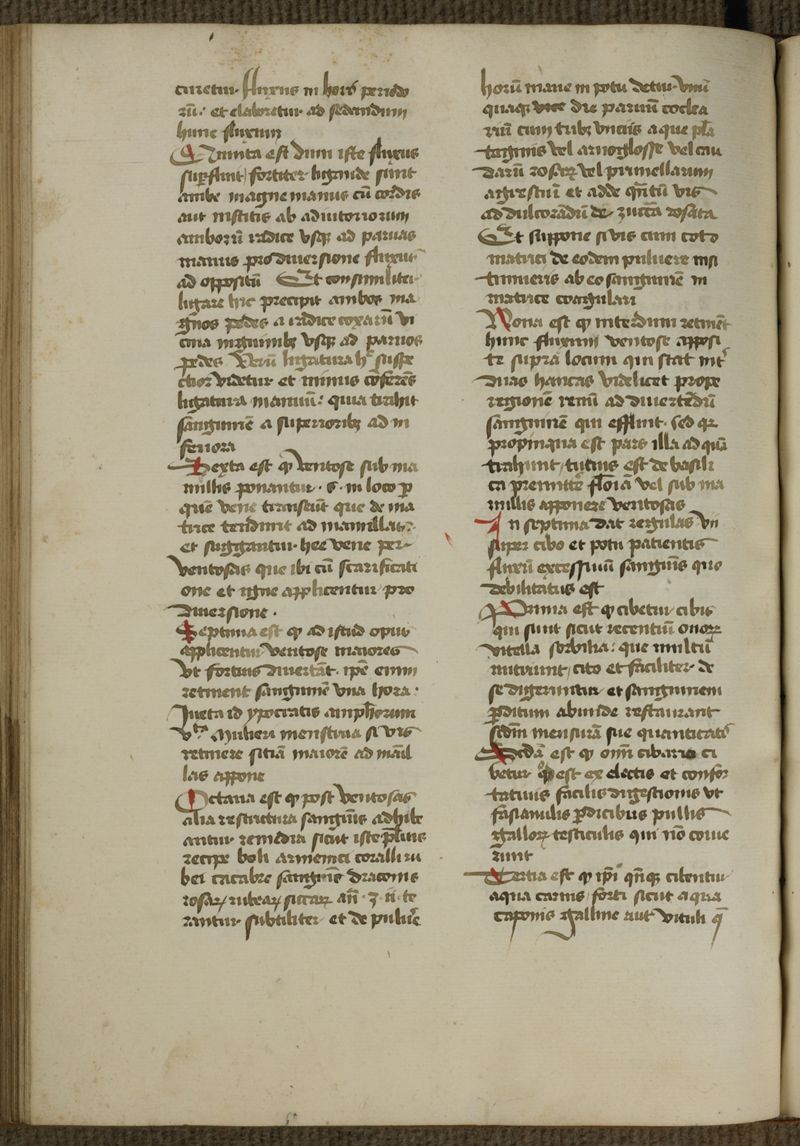 curetur fluxus in horis periodo
rū: et elaboretur ad sedandum
hunc fluxum
Quinta est dum iste fluxus
superfluit fortiter ligande sunt
ambe magne manus cū cordis
aut institis ab adiutoriorum
amborū radice vsqz ad paruas
manus pro diuersione fluxus
ad oppositū Et consimiliter
ligare hic precipit ambos ma
gnos pedes a radice coxarū vi
cina inguinibz vsqz ad paruos
pedes Verū ligatura hec suspe
ctior videtur et minus cōferēs
ligatura manuum: quia trahit
sanguinē a superioribz ad in
feriora
Sexta est qͥ ventose sub ma
millis ponantur .s. in loco p
quē vene transeūt que de ma
trice tendunt ad mamillas:
et suggantur hec vene per
ventosas que ibi cū scarificati
one et igne applicentur pro
diuersione .
Septima est qͥ ad istud opus
applicentur ventose maiores
vt fortius diuertāt. ipē enim
retinent sanguinē vna hora:
Iuxta id ypocratis amphorum
vᵗᵒ. Mulieri menstrua si vis
retinere sitiā maiorē ad mām̄il
las appone
Octaua est qͥ post ventosas
alia restrictiua sanguīs adhibe
antur remedia sicut iste puluis
recipe boli armenici coralli ru
bei cacabre sanguīs draconis
rosarū rubearū siccarū anͣ ʒ ii te
rantur subtiliter et de puluere
horū mane in potu detur vnū
quaqz vice die paruū coclea
riū cum tribz vnciis aque pla
taginis vel arnoglosse vel cau
darū rosarū vel prunellarum
agrestiū et adde qn̄tū vis
ad dulcorādū de zuccara rosata
Et suppone si vis cum coto
matrici de eodem puluere ins
timueris ab eo sanguinē in
matrice coagulari
Nona est qͥ interdum retinet
hunc fluxum ventose apposi
te supra locum qui stat inter
duas hancas videlicet prope
regionē renū ad diuertēdū
sanguinē qui effluit. sed qz
propinqua est pars illa ad quā
trahunt, tutius est de basili
ca premitte fleoia vel sub ma
millis apponere ventosas
In septima dat regulas vn
super cibo et potu patientis
fluxū excessiuū sanguīs quo
debilitatus est
Prima est qͥ cibetur cibis
qui sunt sicut recentiū ouorū
vitella sorbilia: que multū
nutriunt, cito et faciliter de
se digeruntur et sanguinem
pditum abinde restaurant
sedm mensurā sue quantitatis
Secda est qͥ omī cibario ci
betur qͥ est ex electis et confor
tatiuis facilis digestionis vt
fasianulis pdicibus pullis
gallorū testiculis qui nō coiue
runt
Tertia est qͥ ipī qn̄qz cibentur
aqua carnis forti sicut aqua
caponis galline aut vituli q̄